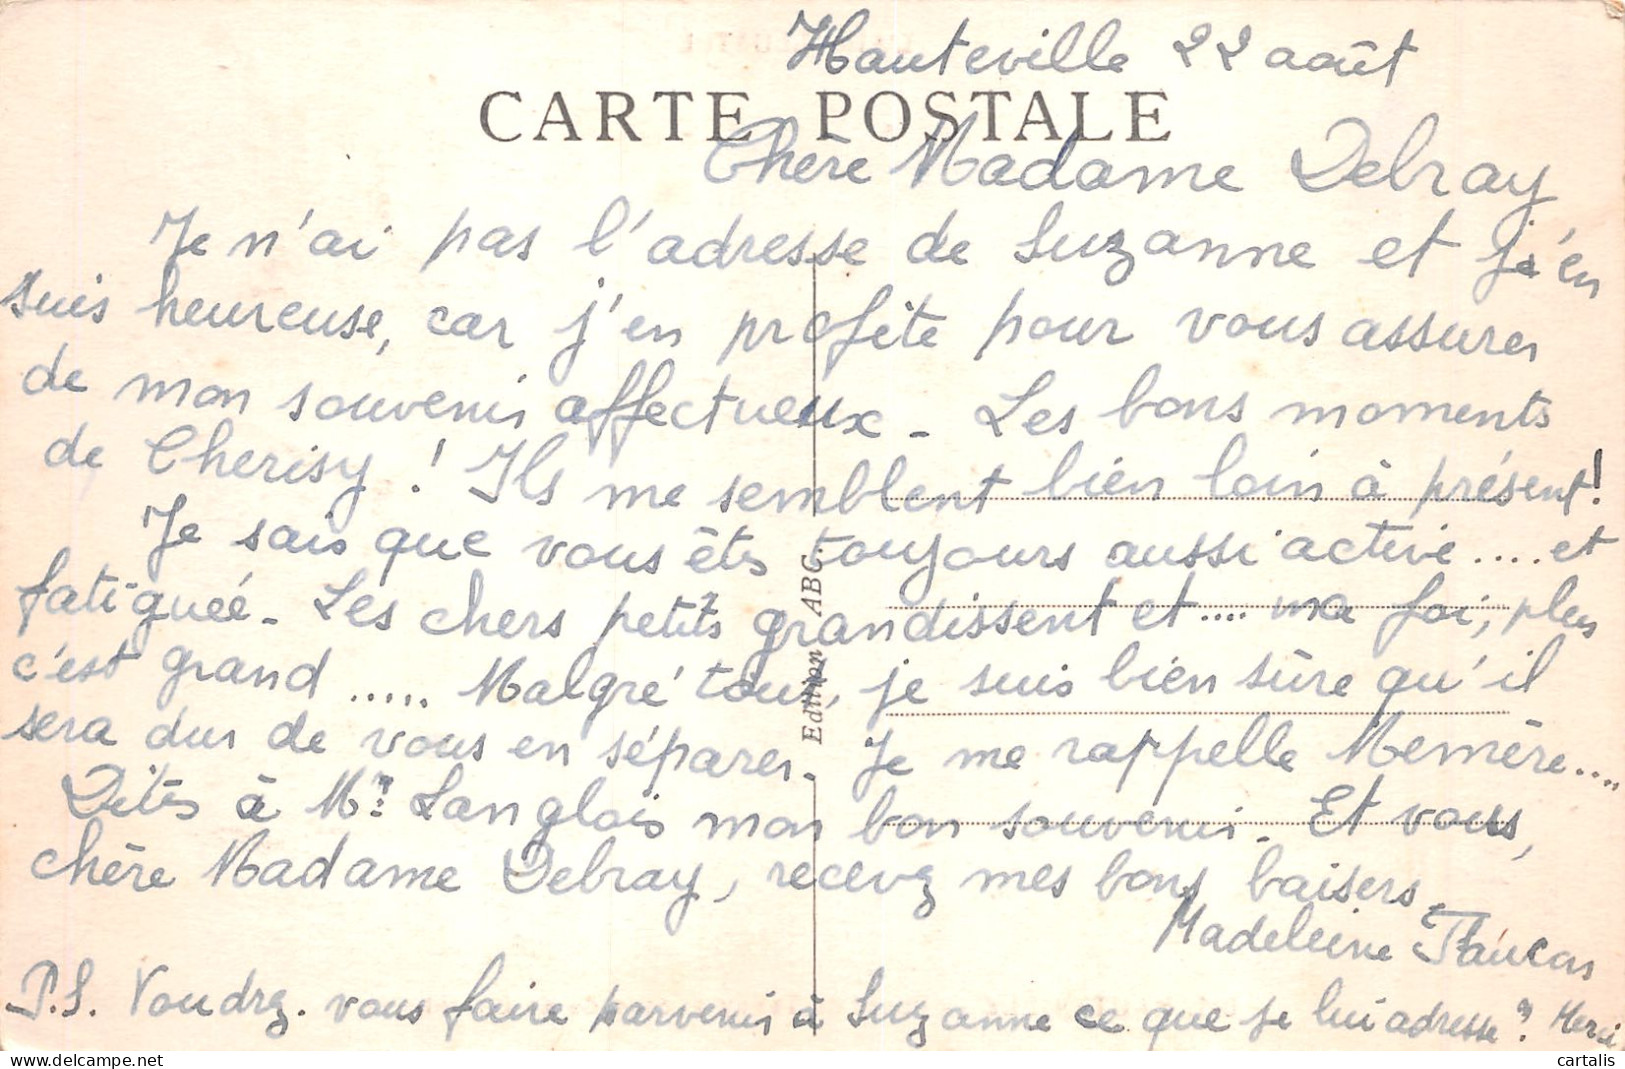 Hauteville 22 août
CARTE POSTALE
Chère Madame Debray
Je n'ai pas l'adresse de Suzanne et j'en
suis heureuse, car j'en profite pour vous assurer
de mon souvenir affectueux - Les bons moments
de Cherisy ! Ils me semblent bien loin à présent !
Je sais que vous êtes toujours aussi active .... et
fatiguée - Les chers petits grandissent et .... ma foi, plus
c'est grand ..... Malgré tout, je suis bien sûre qu'il
sera dur de vous en séparer - Je me rappelle Memère ....
Dites à Mr Langlois mon bon souvenir - Et vous,
chère Madame Debray, recevez mes bons baisers.
Madeleine
P.S. Voudrez-vous faire parvenir à Suzanne ce que je lui adresse ? Merci
Edition ABC.
cartalis